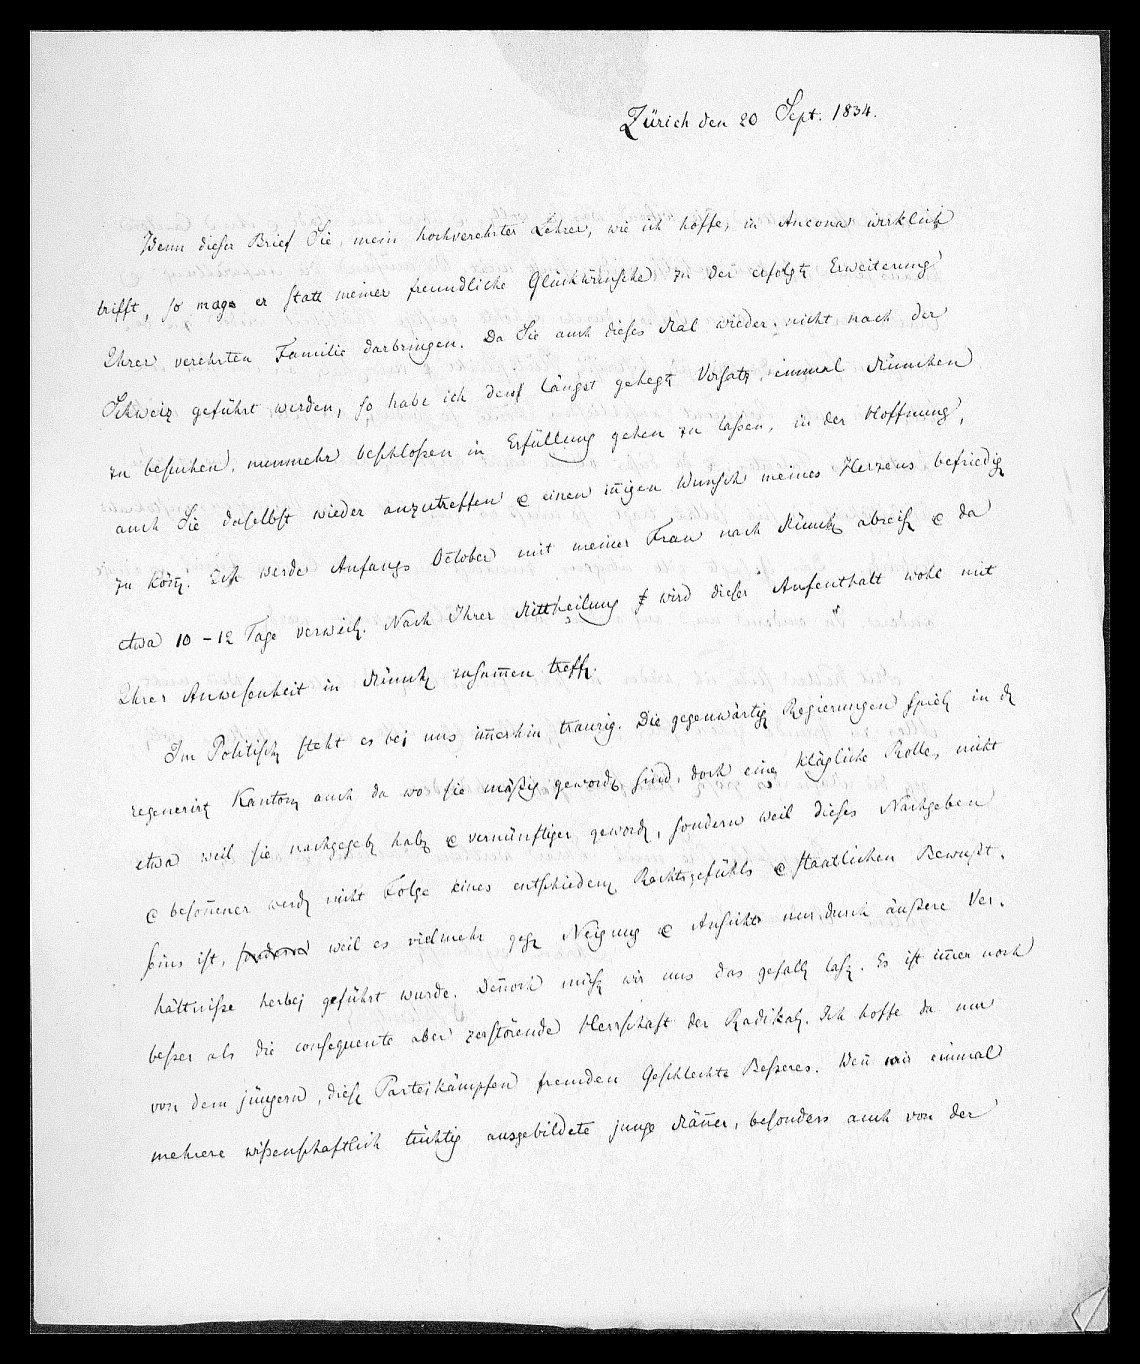 Zürich den 20 Sept. 1834.
Wenn dieser Brief Sie, mein hochverehrter Lehrer, wie ich hoffe, in Ancona wirklich
trifft, so mag er statt meiner freundliche Glückwünsche zu der erfolgten Erweiterung
Ihrer verehrten Familie darbringen. Da Sie auch dieses Mal wieder nicht nach der
Schweiz geführt werden, so habe ich den längst gehegten Vorsatz, einmal München
zu besuchen, nunmehr beschloßen in Erfüllung gehen zu laßen, in der Hoffnung,
auch Sie daselbst wieder anzutreffen & einen iñigen Wunsch meines Herzens befriedigen
zu köñen. Ich werde Anfangs October mit meiner Frau nach München abreisen & da
etwa 10 – 12 Tage verweilen. Nach Ihrer Mittheilung wird dieser Aufenthalt wohl mit
Ihrer Anwesenheit in München zusam̄en treffen.
Im Politischen steht es bei uns im̄erhin traurig. Die gegenwärtigen Regierungen spielen in den
regenerirten Kantonen auch da wo sie mäßig geworden sind, doch eine klägliche Rolle, nicht
etwa weil sie nachgegeben haben & vernünftiger geworden, sondern weil dieses Nachgeben
& besoñener werden nicht Folge eines entschiedenen Rechtsgefühls & staatlichen Bewußt-
seins ist, sondern weil es vielmehr gegen Neigung & Ansicht nur durch äußere Ver-
hältniße herbei geführt wurde. Deñoch müßen wir uns das gefallen laßen. Es ist im̄er noch
beßer als die consequente aber zerstörende Herrschaft der Radikalen. Ich hoffe da nur
von dem jüngern, diesen Parteikämpfen fremden Geschlechte Beßeres. Weñ wir einmal
mehrere wißenschaftlich tüchtig ausgebildete junge Mäñer, besonders auch von der